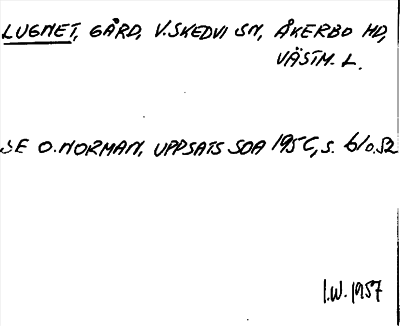 LUGNET, GÅRD, V. SKEDVI SN, ÅKERBO HD,
VÄSTM. L.
SE O. NORMAN, UPPSATS SOA 195C, S. 6/0.52
I.W. 1957